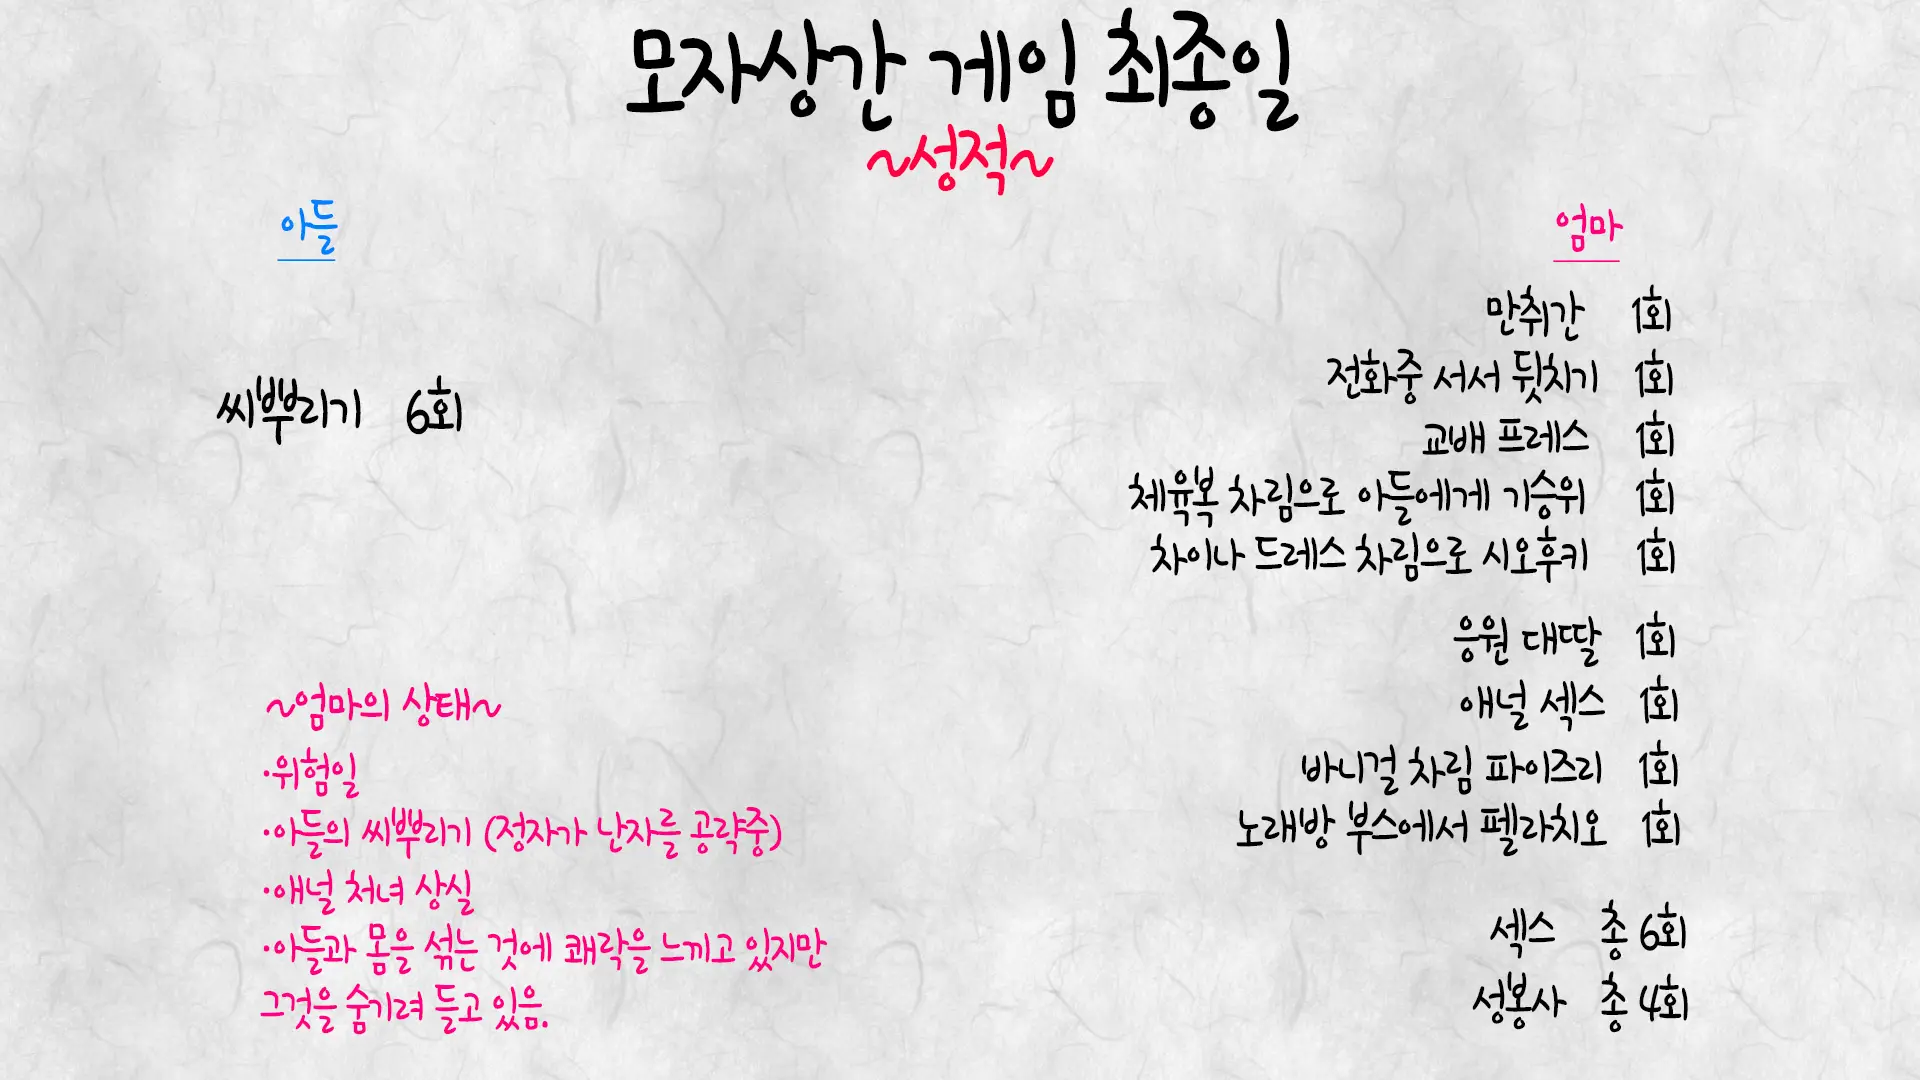 모자상간 게임 최종일
~성적~
아들
씨뿌리기 6회
엄마
만취간 1회
전화중 서서 뒷치기 1회
교배 프레스 1회
체육복 차림으로 아들에게 기승위 1회
차이나 드레스 차림으로 시오후키 1회
응원 대딸 1회
애널 섹스 1회
바니걸 차림 파이즈리 1회
노래방 부스에서 펠라치오 1회
섹스 총 6회
성봉사 총 4회
~엄마의 상태~
·위험일
·아들의 씨뿌리기 (정자가 난자를 공략중)
·애널 처녀 상실
·아들과 몸을 섞는 것에 쾌락을 느끼고 있지만
그것을 숨기려 들고 있음.